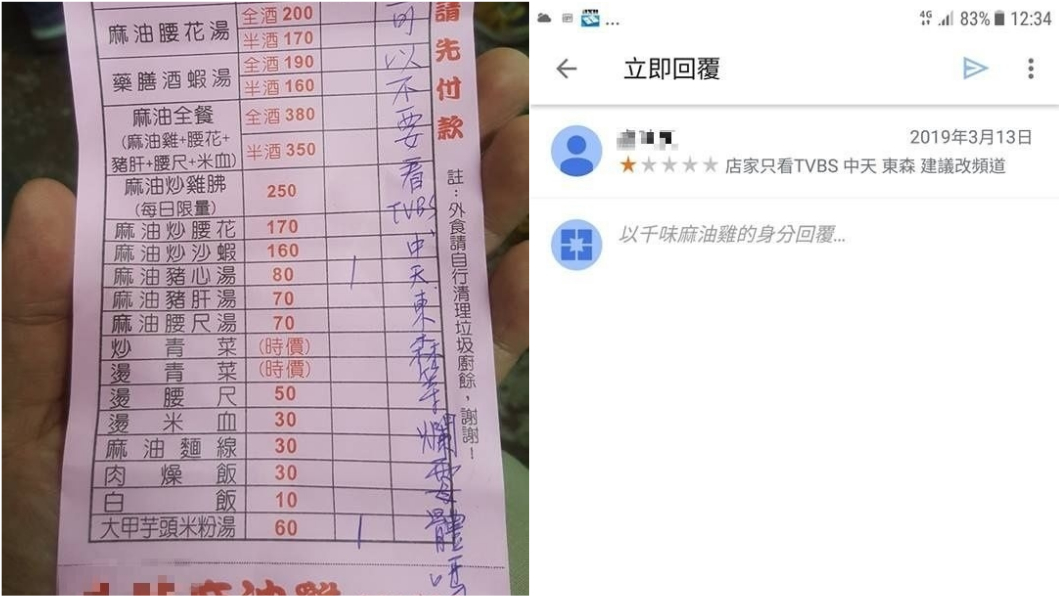 麻油腰花湯 全酒 200
半酒 170
藥膳酒蝦湯 全酒 190
半酒 160
麻油全餐
(麻油雞+腰花+
豬肝+腰尺+米血)
全酒 380
半酒 350
麻油炒雞胇
(每日限量)
250
麻油炒腰花 170
麻油炒沙蝦 160
麻油豬心湯 80 1
麻油豬肝湯 70
麻油腰尺湯 70
炒青菜 (時價)
燙青菜 (時價)
燙腰尺 50
燙米血 30
麻油麵線 30
肉燥飯 30
白飯 10
大甲芋頭米粉湯 60 1
可以不要看TVBS、中天、東森等爛媒體嗎
請先付款
註:外食請自行清理垃圾廚餘,謝謝!
麻油雞
4G 83% 12:34
立即回覆
2019年3月13日
店家只看TVBS 中天 東森 建議改頻道
以千味麻油雞的身分回覆...